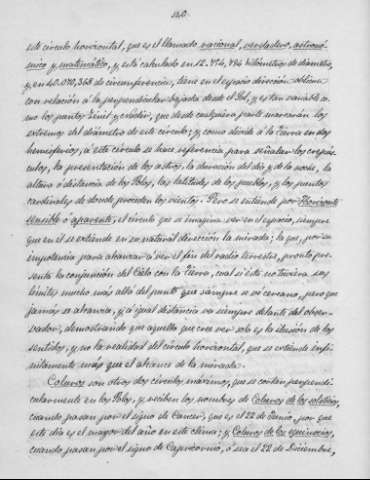 120.
este círculo horizontal, que es el llamado racional, verdadero, astronó-
mico y matemático, y está calculado en 12.754,794 kilómetros de diámetro,
y en 40.070,368 de circunferencia, tiene en el espacio dirección oblicua
con relación á la perpendicular bajada desde el Sol, y es tan variable co-
mo los puntos Zenit y que desde cualquiera parte marcarán los
extremos del diámetro de este círculo; y como divide á la Tierra en dos
hemisferios, á este círculo se hace referencia para señalar los crepús-
culos, la presentación de los astros, la duración del día y de la noche, la
altura ó distancia de los Polos, las latitudes de los pueblos, y los puntos
cardinales de donde proceden los vientos. Pero se entiende por Horizonte
sensible ó aparente, el círculo que se imagina ver en el espacio, siempre
que en él se extiende en su natural dirección la mirada; la que, por su
impotencia para alcanzar á ver el fin del radio terrestre, pronto pre-
senta la conjunción del Cielo con la Tierra, cual si ésta no tuviera sus
límites mucho más allá del punto que siempre se vé cercano, pero que
jamás se alcanza, y á igual distancia va siempre delante del obser-
vador, demostrando que aquello que cree ver solo es la ilusión de los
sentidos, y no la realidad del círculo horizontal, que se extiende infi-
nitamente más que el alcance de la mirada.
Coluros son otros dos círculos máximos, que se cortan perpendi-
cularmente en los Polos, y reciben los nombres de Coluros de los solsticios,
cuando pasan por el signo de Cancer, que es el 22 de Junio, por que
este día es el mayor del año en este clima; y Coluros de los equinocios,
cuando pasan por el signo de Capricornio, ó sea el 22 de Diciembre,